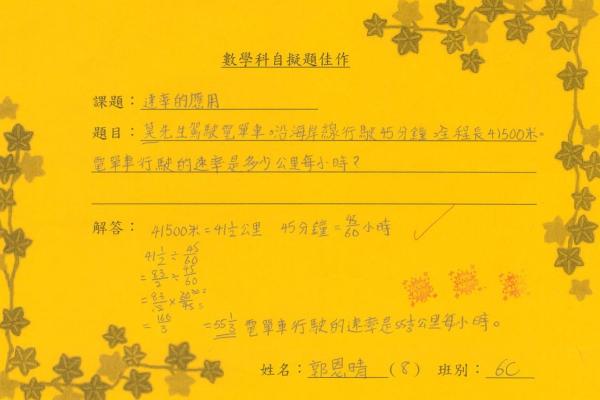 數學科自擬題佳作
課題：速率的應用
題目：吳先生駕駛電單車。沿海岸線行駛45分鐘，全程長41500米。
電單車行駛的速率是多少公里每小時？
解答：41500米=41½公里 45分鐘=45/60小時
41 1/2 ÷ 45/60
=83/2 ÷ 45/60
=83/2 ×
=166/3 =55 1/3 電單車行駛的速率是55⅓公里每小時。
姓名：郭恩晴(8) 班別：6C